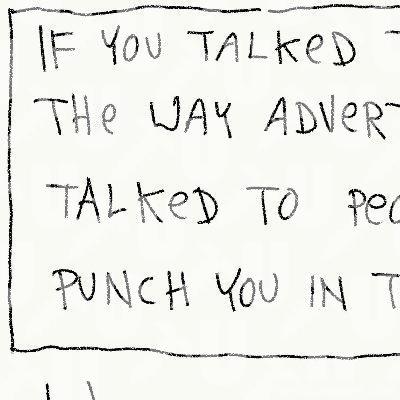 IF YOU TALKED T
THE WAY ADVERT
TALKED TO PEO
PUNCH YOU IN T